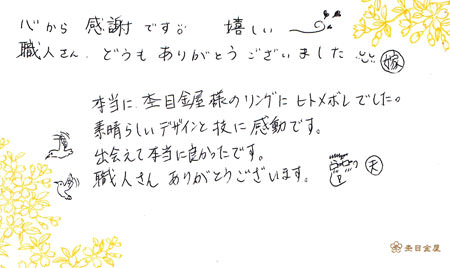 心から 感謝です。 嬉しい
職人さん、どうもありがとうございました 嫁
本当に、杢目金屋様のリングにヒトメボレでした。
素晴らしいデザインと技に感動です。
出会えて本当に良かったです。
職人さん ありがとうございます。 夫
杢目金屋